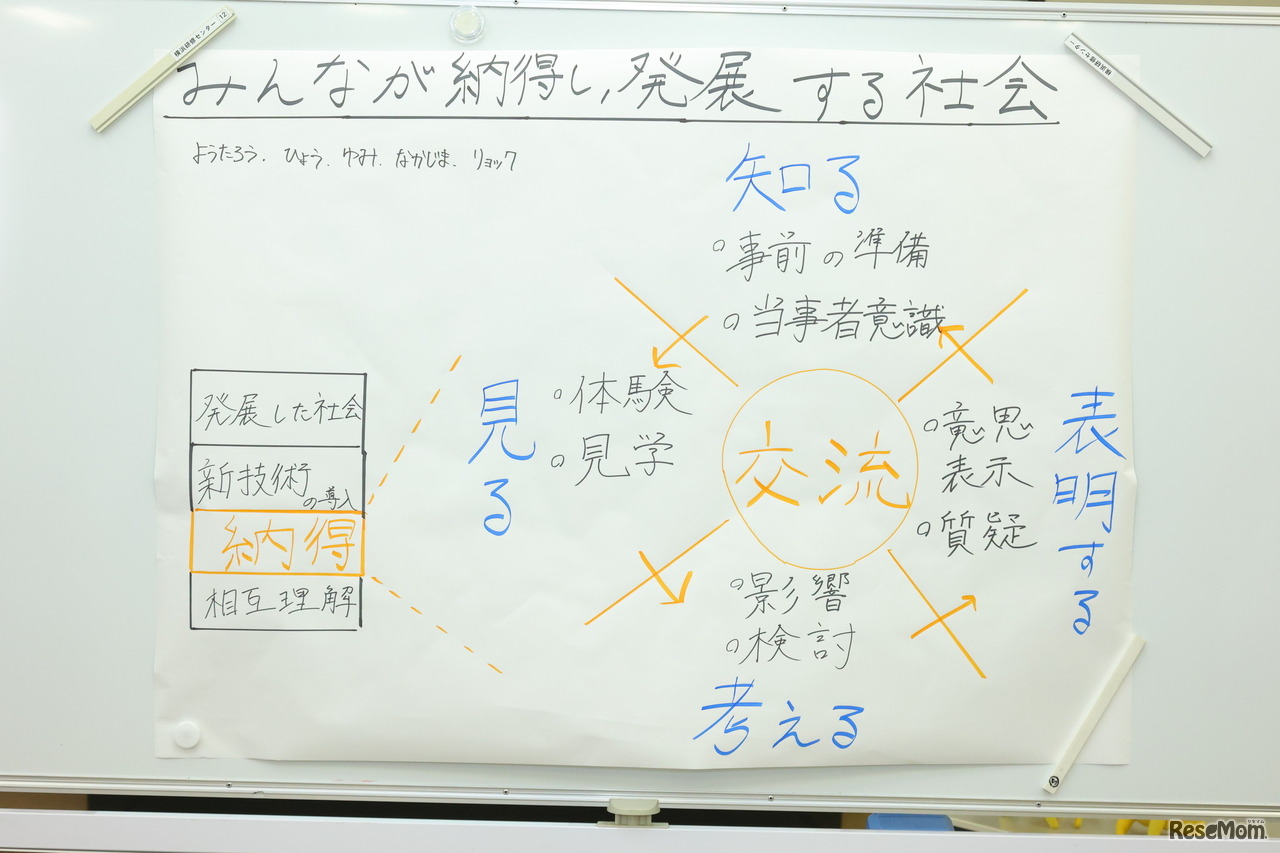 横浜研修センター 12
横浜研修センター
みんなが納得し,発展する社会
ようたろう. ひょう. ゆみ. なかじま. リョック
知る
○事前の準備
○当事者意識
発展した社会
新技術の導入
納得
相互理解
見る
○体験
○見学
交流
○意思
表示
○質疑
表明する
○影響
○検討
考える
ReseMom